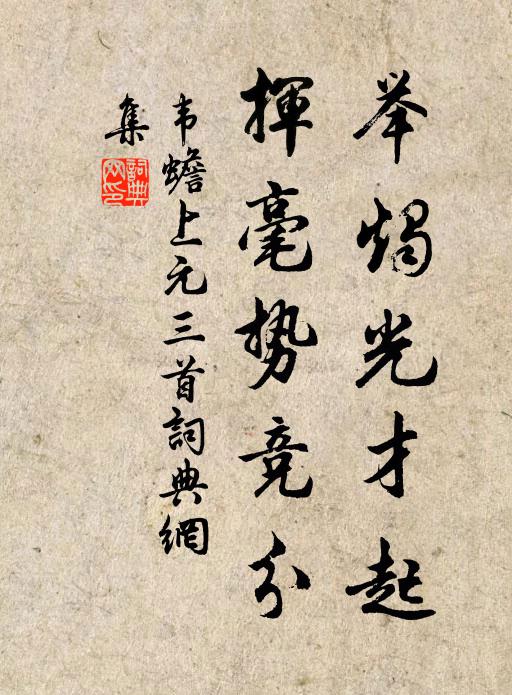 举烛光才起
揮毫势竞分
韦蟾上元三首詞典網
集
詞典
网印